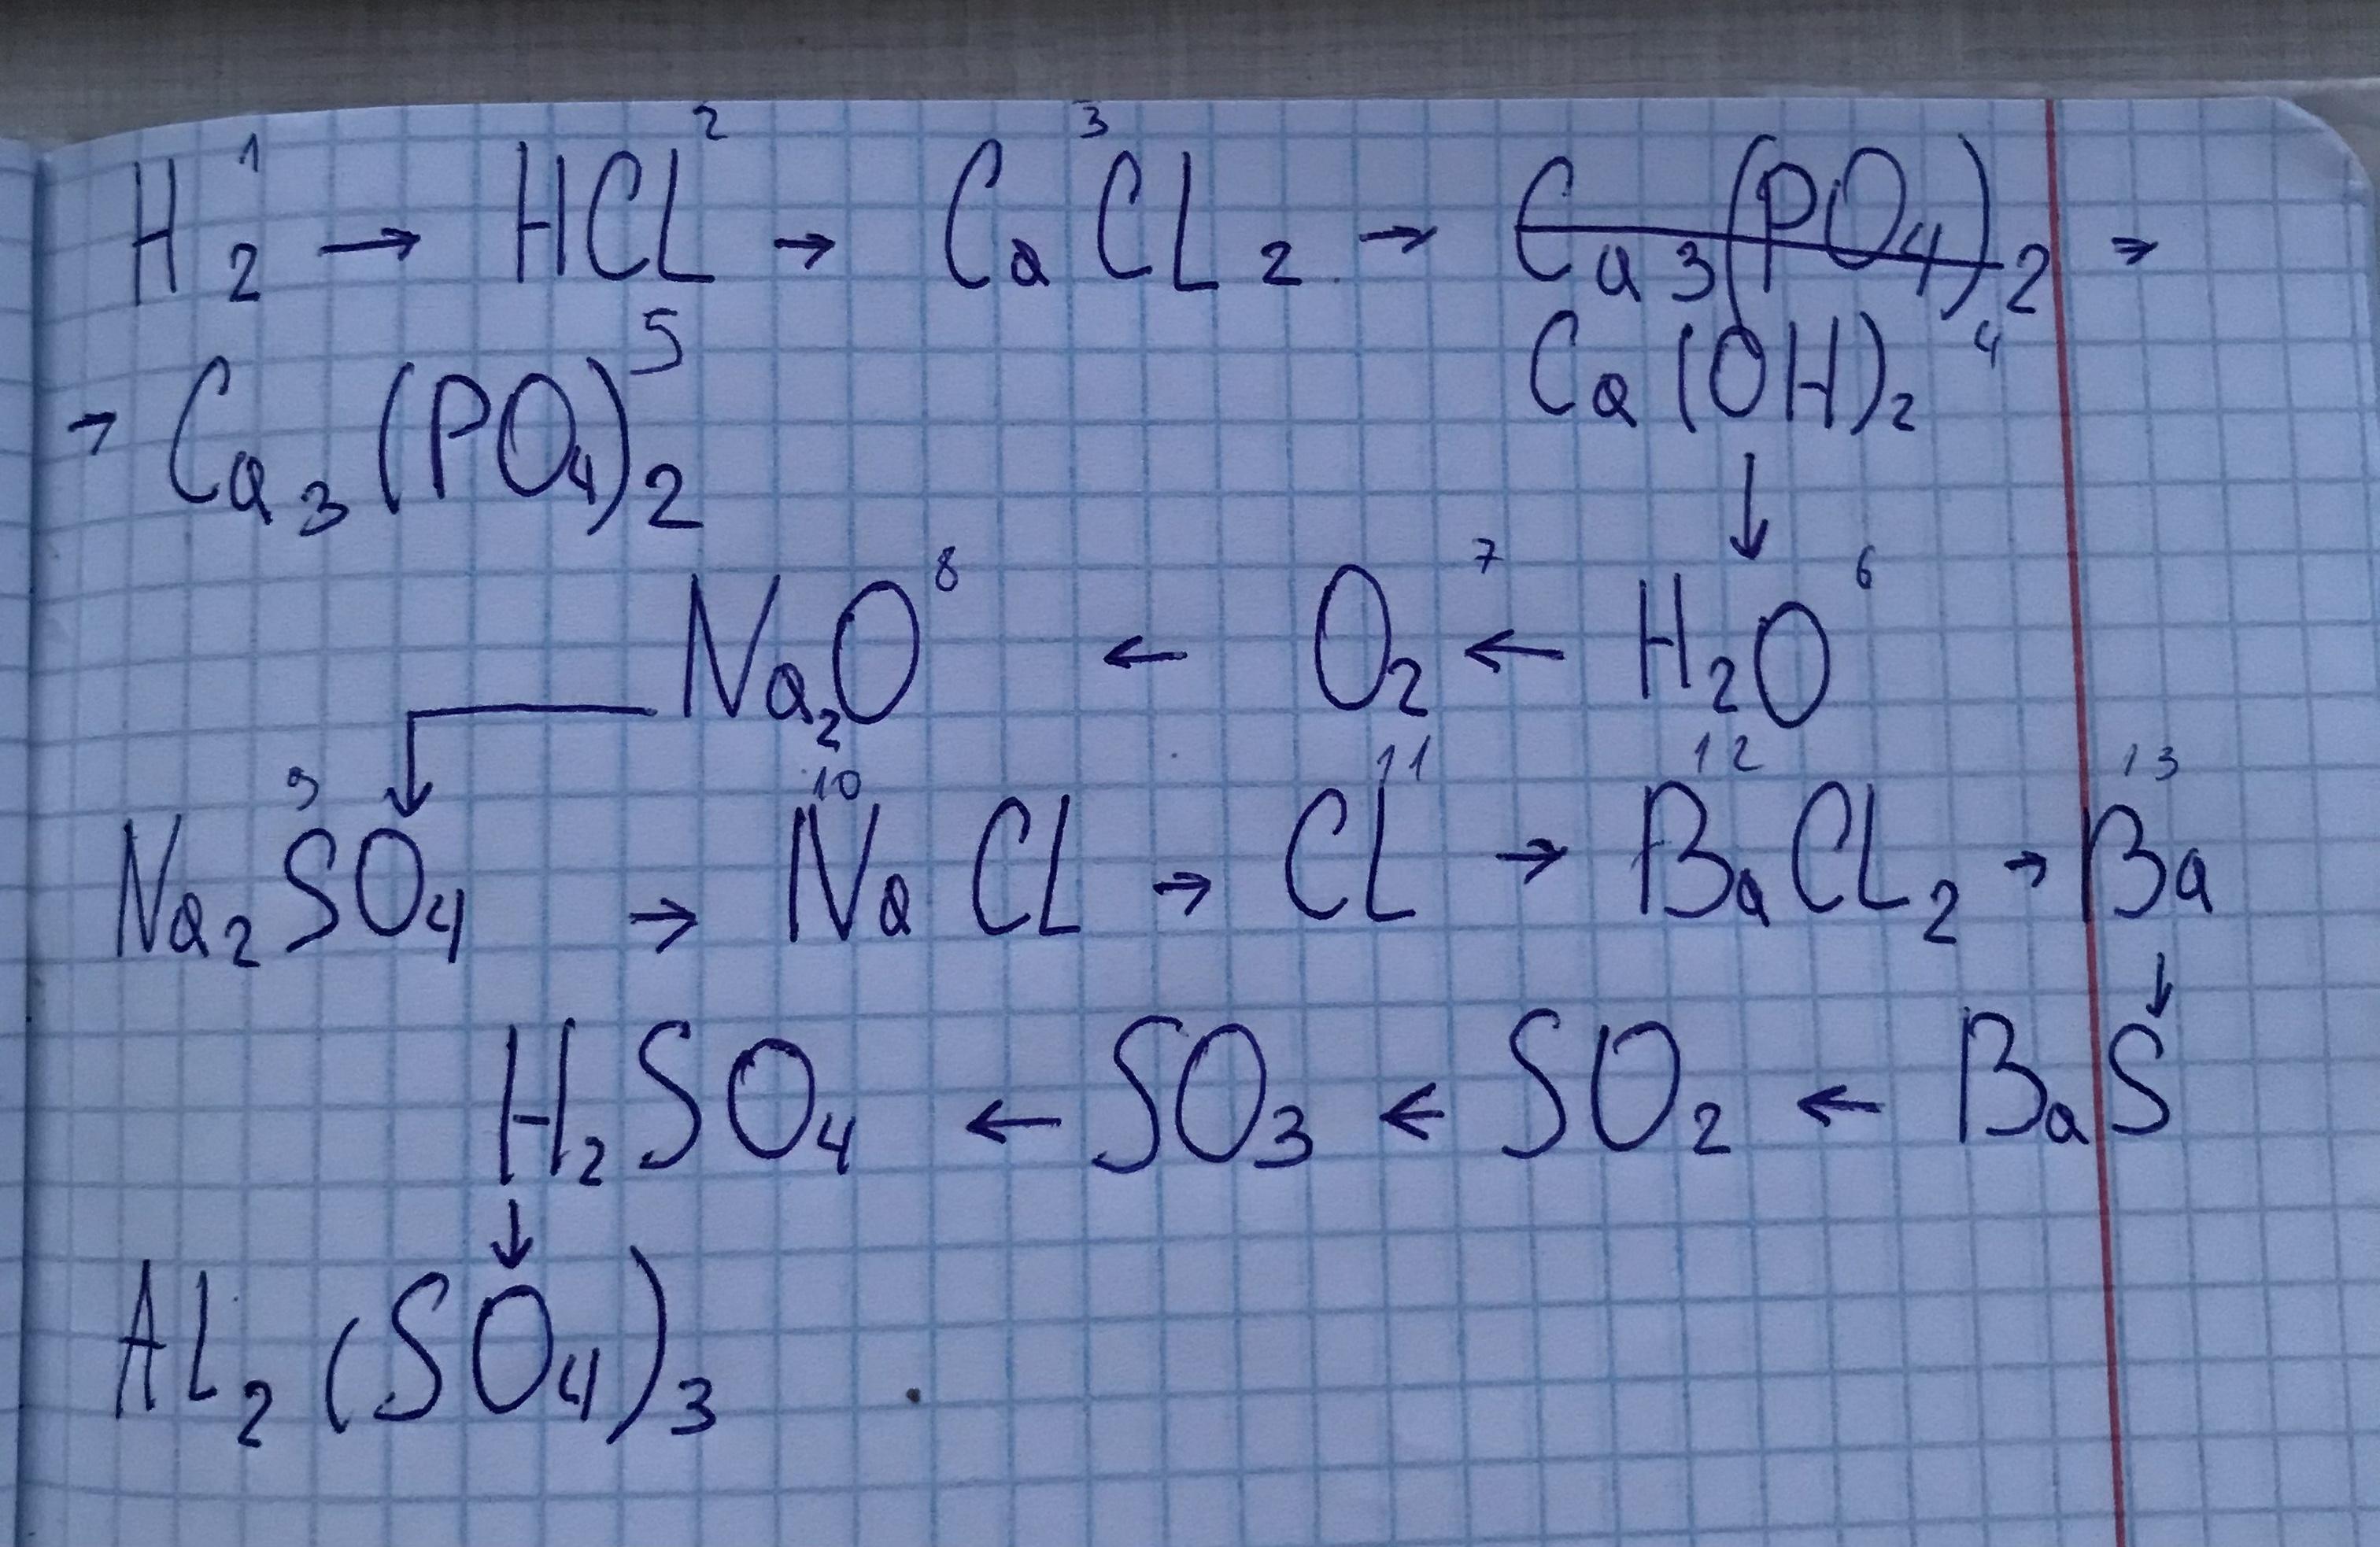 H₂ ¹ → HCL ² → CaCL₂ ³ → ~~Ca₃(PO₄)₂~~ →
Ca(OH)₂ ⁴
→ Ca₃(PO₄)₂ ⁵
↓
Na₂O ⁸ ← O₂ ⁷ ← H₂O ⁶
↓
Na₂SO₄ ⁹ → NaCL ¹⁰ → CL ¹¹ → BaCL₂ ¹² → Ba ¹³
↓
H₂SO₄ ← SO₃ ← SO₂ ← BaS
↓
AL₂(SO₄)₃